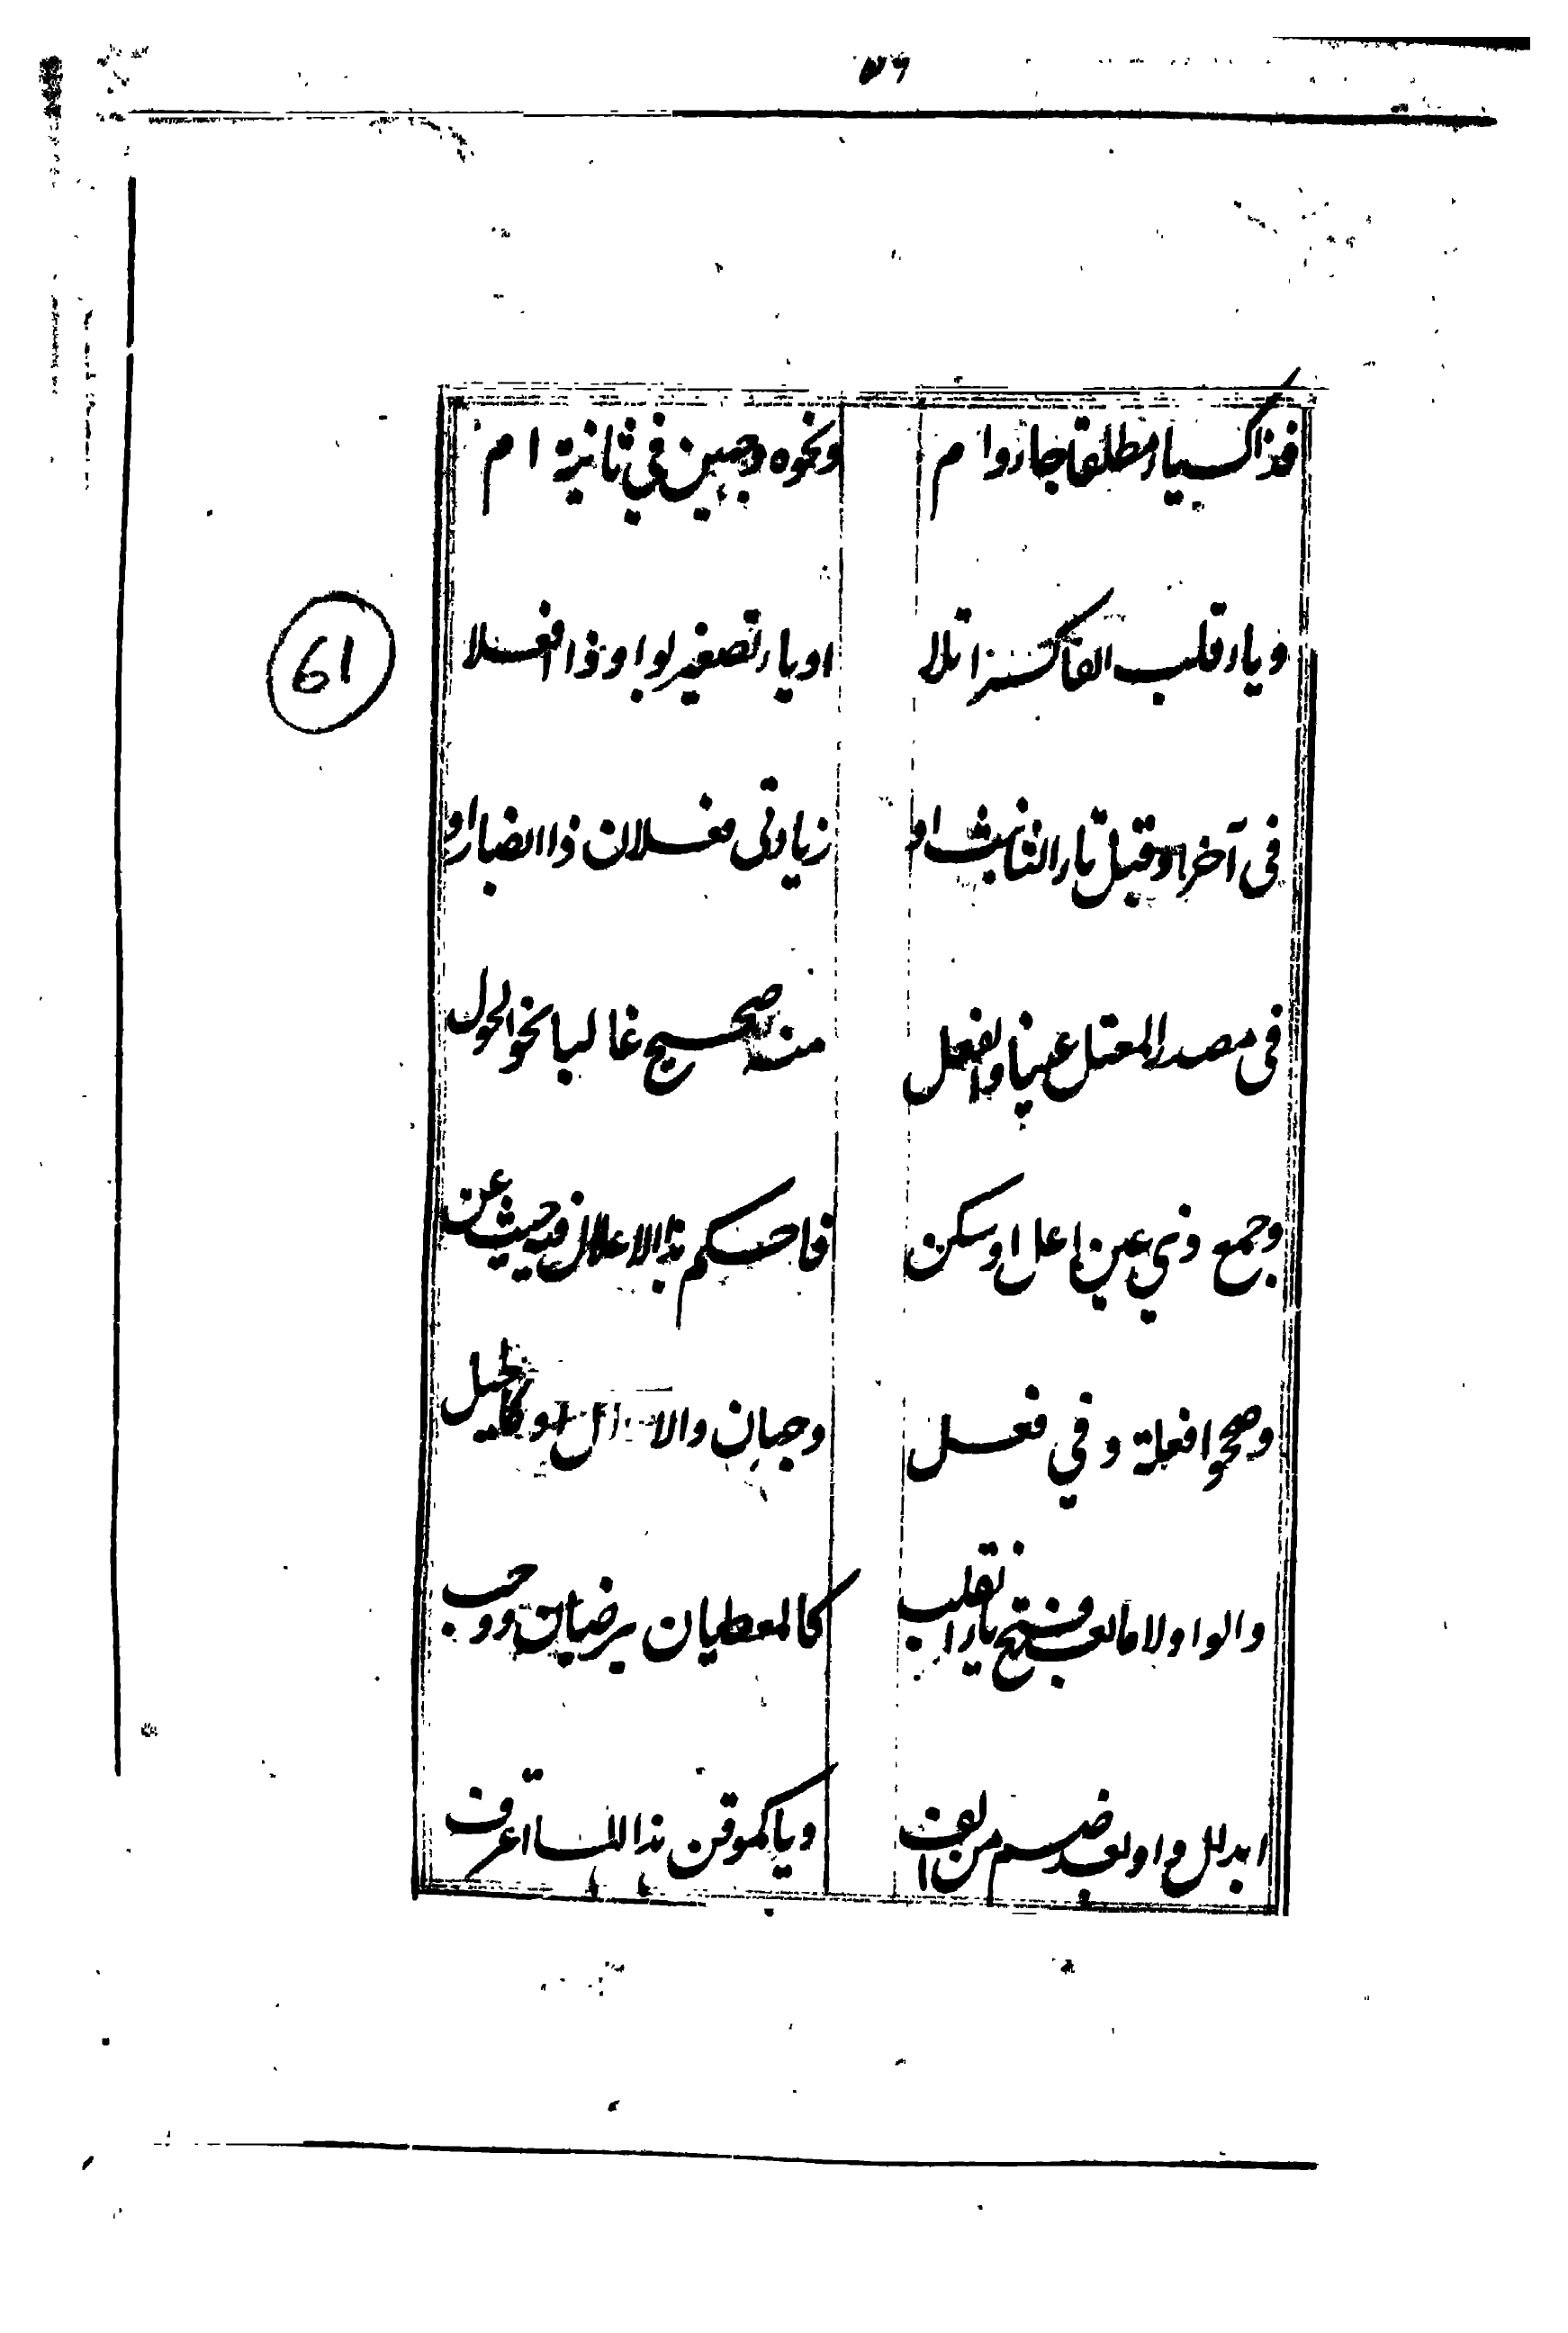 ٥٦
فذاك يياء مطلقا جا وا م ونحوه وجهين في ثانية ام
وياء اقلب الفا كسرا تلا او ياء تصغير بواو ذا افعلا
في آخر او قبل تاء التانيث او زيادتي فعلان ذا ايضا راو
في مصدر المعتل عينا والفعل منه صحيح غالبا نحو الحول
وجمع ذي عين اعل او سكن فاحكم بذا الاعلال فيه حيث عن
وصححوا فعلة وفي فعل وجهان والا او كالحيل
والواو لاما بعد فتح ياء انقلب كالمعطيان يرضيان ووجب
ابدال واو بعد ضم من الف ويا كموقن بذا لها اعترف
61